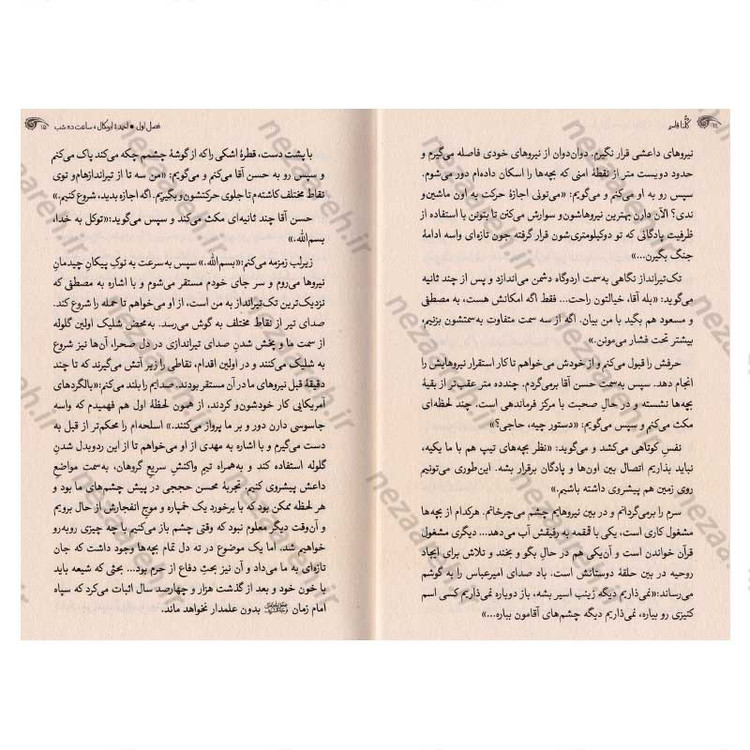 نیروهای داعشی قرار نگیرم. دوان‌دوان از نیروهای خودی فاصله می‌گیرم و
حدود دویست متر از نقطهٔ امنی که بچه‌ها را اسکان داده‌ام دور می‌شوم.
سپس رو به او می‌کنم و می‌گویم: «می‌تونی اجازهٔ حرکت به اون ماشین‌و
ندی؟ الآن دارن بهترین نیروهاشون‌و سوارش می‌کنن تا بتونن با استفاده از
ظرفیت پادگانی که تو دوکیلومتری‌شون قرار گرفته جون تازه‌ای واسه ادامهٔ
جنگ بگیرن...»
تک‌تیرانداز نگاهی به‌سمت اردوگاه دشمن می‌اندازد و پس از چند ثانیه
می‌گوید: «بله آقا، خیالتون راحت... فقط اگه امکانش هست، به مصطفی
و مسعود هم بگید با من بیان. اگه از سه سمت متفاوت به‌سمتشون بزنیم،
بیشتر تحت فشار می‌مونن.»
حرفش را قبول می‌کنم و از خودش می‌خواهم تا کار استقرار نیروهایش را
انجام دهد. سپس به‌سمت حسن آقا برمی‌گردم. چندده متر عقب‌تر از بقیهٔ
بچه‌ها نشسته و در حال صحبت با مرکز فرماندهی است. چند لحظه‌ای
مکث می‌کنم و سپس می‌گویم: «دستور چیه، حاجی؟»
نفس کوتاهی می‌کشد و می‌گوید: «نظر بچه‌های تیپ هم با ما یکیه،
نباید بذاریم اتصال بین اون‌ها و پادگان برقرار بشه. این‌طوری می‌تونیم
روی زمین هم پیشروی داشته باشیم.»
سرم را برمی‌گردانم و در بین نیروهایم چشم می‌چرخانم. هرکدام از بچه‌ها
مشغول کاری است، یکی با قمقمه به رفیقش آب می‌دهد... دیگری مشغول
قرآن خواندن است و آن‌یکی هم در حال بگو و بخند و تلاش برای ایجاد
روحیه در بین حلقهٔ دوستانش است. باد صدای امیرعباس را به گوشم
می‌رساند: «نمی‌ذاریم دیگه زینب اسیر بشه، باز دوباره نمی‌ذاریم کسی اسم
کنیزی رو بیاره، نمی‌ذاریم دیگه چشم‌های آقامون بباره...»
فصل اول • نجمهٔ ابوکمال، ساعت ده شب ۱۵
با پشت دست، قطرهٔ اشکی را که از گوشهٔ چشمم چکه می‌کند پاک می‌کنم
و سپس رو به حسن آقا می‌کنم و می‌گویم: «من سه تا از تیراندازهام‌و توی
نقاط مختلف کاشته‌م تا جلوی حرکتشون‌و بگیریم. اگه اجازه بدید، شروع کنیم.»
حسن آقا چند ثانیه‌ای مکث می‌کند و سپس می‌گوید: «توکل به خدا،
بسم‌الله.»
زیرلب زمزمه می‌کنم: «بسم‌الله.» سپس به‌سرعت به نوک پیکانِ چیدمانِ
نیروها می‌روم و سر جای خودم مستقر می‌شوم و با اشاره به مصطفی که
نزدیک‌ترین تک‌تیرانداز به من است، از او می‌خواهم تا حمله را شروع کند.
صدای تیر از نقاط مختلف به گوش می‌رسد. به‌محض شلیک اولین گلوله
از سمت ما و پخش شدنِ صدای تیراندازی در دل صحرا، آن‌ها نیز شروع
به شلیک می‌کنند و در اولین اقدام، نقاطی را زیر آتش می‌گیرند که تا چند
دقیقهٔ قبل نیروهای ما در آن مستقر بودند. صدایم را بلند می‌کنم: «بالگردهای
آمریکایی کار خودشون‌و کردند، از همون لحظهٔ اول هم فهمیدم که واسه
جاسوسی دارن دور و بر ما پرواز می‌کنند.» اسلحه‌ام را محکم‌تر از قبل به
دست می‌گیرم و با اشاره به مهدی از او می‌خواهم تا از این ردوبدل شدنِ
گلوله استفاده کند و به‌همراه تیمِ واکنشِ سریعِ گروهان، به‌سمت مواضع
داعش پیشروی کنیم. تجربهٔ محسن حججی در پیش چشم‌های ما بود و
هر لحظه ممکن بود که با برخورد یک خمپاره و موج انفجارش از حال برویم
و آن‌وقت دیگر معلوم نبود که وقتی چشم باز می‌کنیم با چه چیزی روبه‌رو
خواهیم شد. اما یک موضوع در ته دل تمام بچه‌ها وجود داشت که جان
تازه‌ای به ما می‌داد و آن نیز بحثِ دفاع از حرم بود... بحثی که شیعه باید
با خون خود و بعد از گذشت هزار و چهارصد سال اثبات می‌کرد که سپاه
امام زمان بدون علمدار نخواهد ماند.
nezaareh.ir